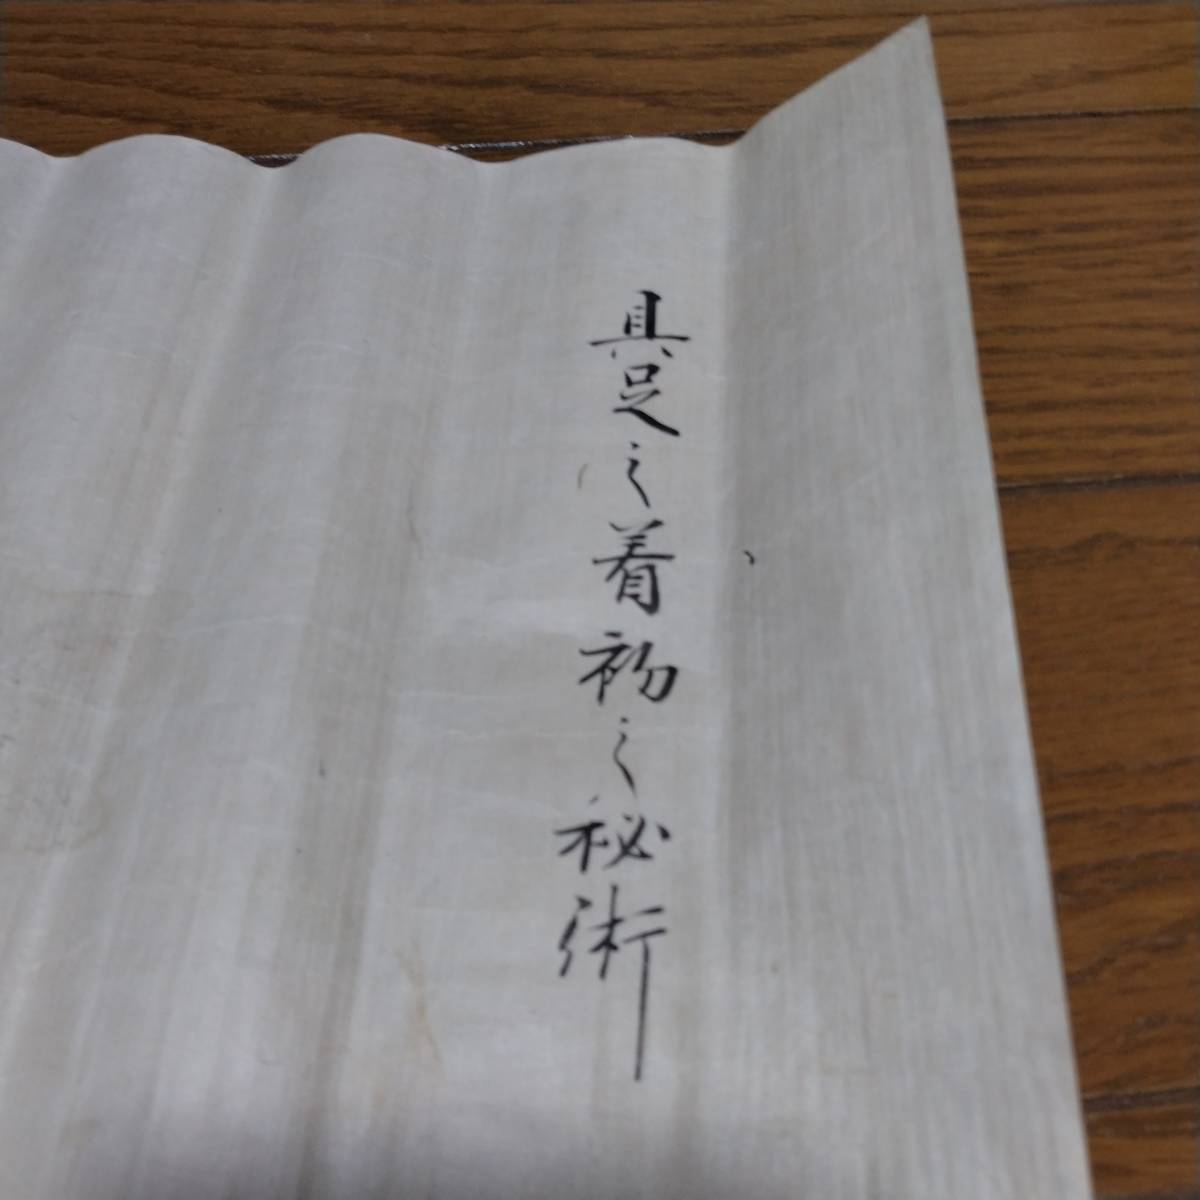 具足之着初之秘術